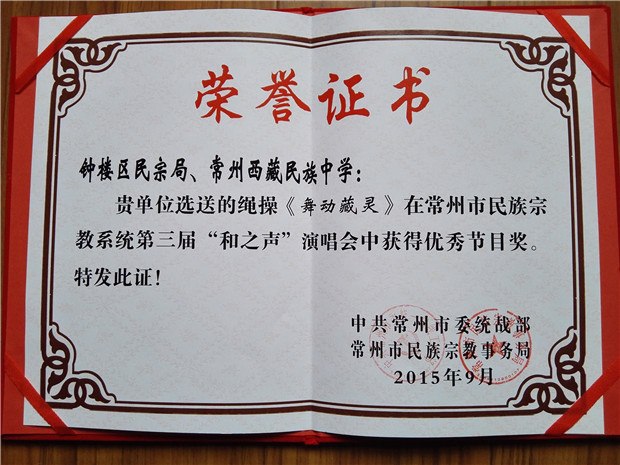 荣誉证书
钟楼区民宗局、常州西藏民族中学：
贵单位选送的绳操《舞动藏灵》在常州市民族宗
教系统第三届“和之声”演唱会中获得优秀节目奖。
特发此证！
中共常州市委统战部
常州市民族宗教事务局
2015年9月